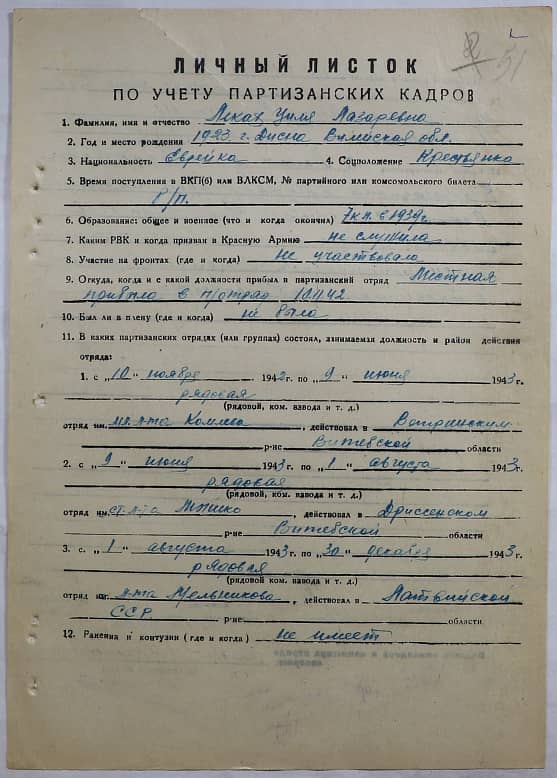 51
ЛИЧНЫЙ ЛИСТОК
ПО УЧЕТУ ПАРТИЗАНСКИХ КАДРОВ
1. Фамилия, имя и отчество Циля Лазаревна
2. Год и место рождения 1923 г. Дисна Вилейская обл.
3. Национальность Еврейка 4. Соцположение Крестьянка
5. Время поступления в ВКП(б) или ВЛКСМ, № партийного или комсомольского билета
б/п.
6. Образование: общее и военное (что и когда окончил) 7 кл. в 1939г.
7. Каким РВК и когда призван в Красную Армию не служила
8. Участие на фронтах (где и когда) Не участвовала
9. Откуда, когда и с какой должности прибыл в партизанский отряд Местная
прибыла в п/отряд 10.11.42
10. Был ли в плену (где и когда) не была
11. В каких партизанских отрядах (или группах) состоял, занимаемая должность и район действия
отряда:
1. с „10“ ноября 1942 г. по „9“ июня 1943 г.
рядовая
(рядовой, ком. взвода и т. д.)
отряд им. действовал в
р-не Витебской области
2. с „9“ июня 1943 г. по „1“ августа 1943 г.
рядовая
(рядовой, ком. взвода и т. д.)
отряд им. ст. л-та действовал в Дриссенском
р-не Витебской области
3. с „1“ августа 1943 г. по „30“ декабря 1943 г.
рядовая
(рядовой, ком. взвода и т. д.)
отряд им. л-та Мельникова, действовал в Латвийской
ССР р-не области
12. Ранения и контузии (где и когда) Не имеет